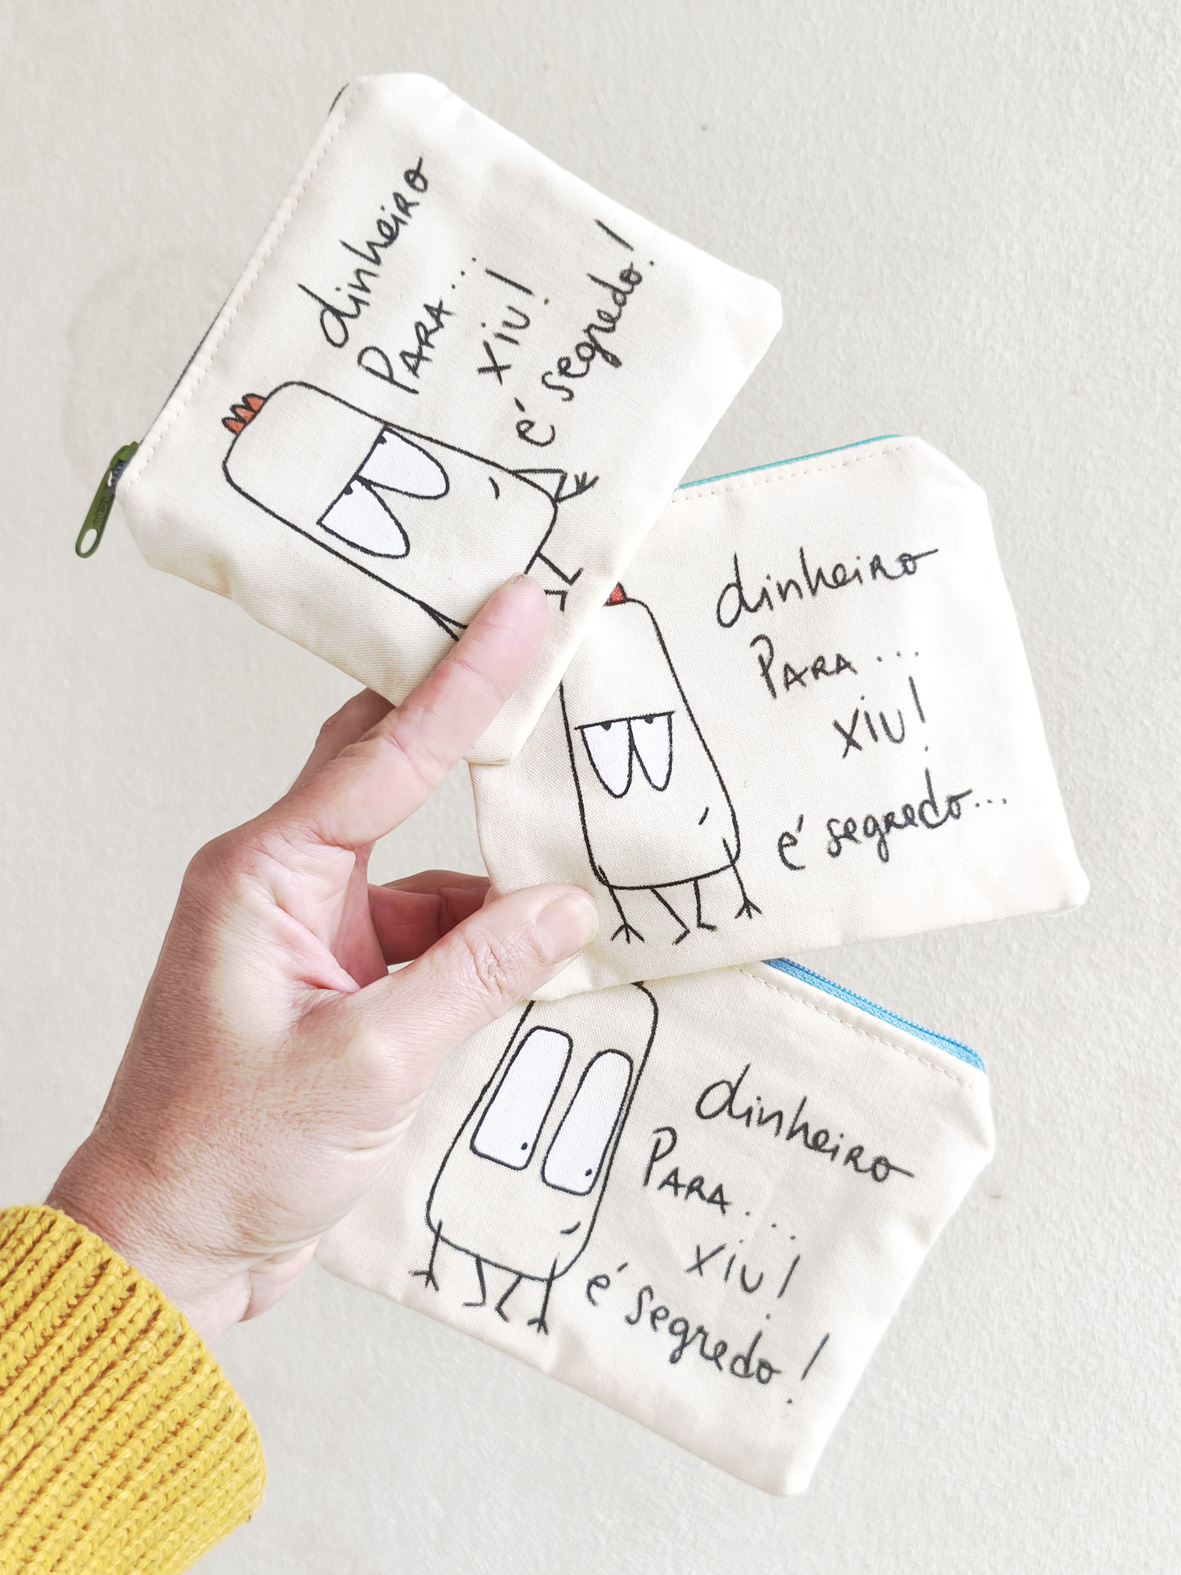 dinheiro
PARA...
xiu!
é segredo!
dinheiro
PARA...
xiu!
é segredo...
dinheiro
PARA...
xiu!
é segredo!